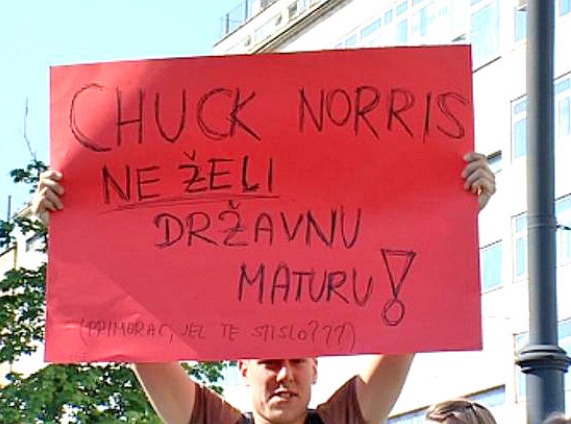 CHUCK NORRIS
NE ŽELI
DRŽAVNU
MATURU!
(PRIMORAC, JEL TE STISLO???)